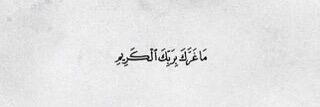 مَا غَرَّكَ بِرَبِّكَ ٱلْكَرِيمِ